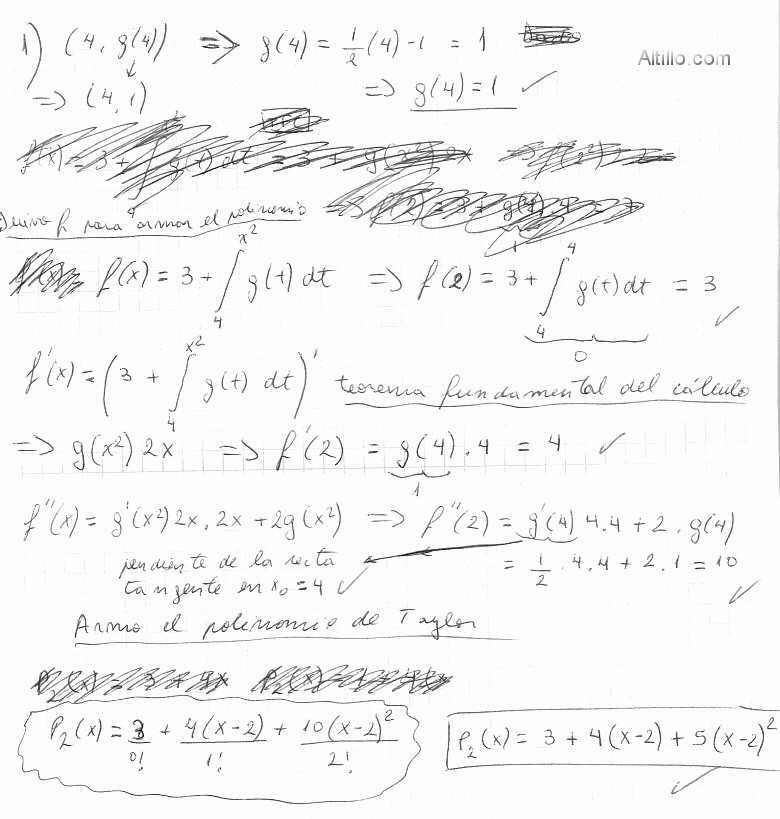 1) (4, g(4)) => g(4) = 1/2 (4) -1 = 1
Altillo.com
=> (4, 1) => g(4) = 1 ✓
Derivo f para armar el polinomio
f(x) = 3 + ∫₄^{x²} g(t) dt => f(2) = 3 + ∫₄⁴ g(t) dt = 3 ✓
0
f'(x) = (3 + ∫₄^{x²} g(t) dt)' teorema fundamental del cálculo
=> g(x²) 2x => f'(2) = g(4) . 4 = 4 ✓
1
f''(x) = g'(x²) 2x . 2x + 2g(x²) => f''(2) = g'(4) 4.4 + 2 . g(4)
pendiente de la recta = 1/2 . 4.4 + 2.1 = 10 ✓
tangente en x₀ = 4 ✓
Armo el polinomio de Taylor
P₂(x) = 3/0! + 4(x-2)/1! + 10(x-2)²/2!
P₂(x) = 3 + 4(x-2) + 5(x-2)² ✓